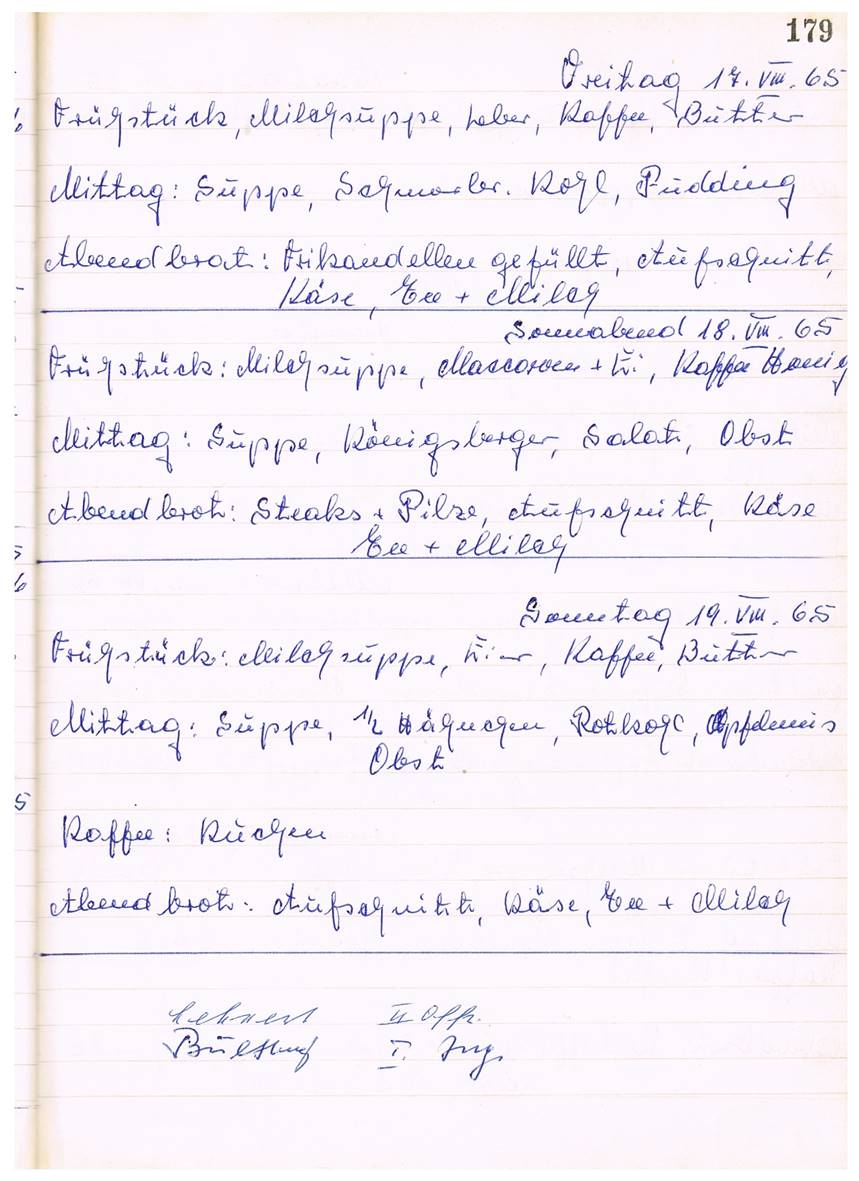 179
Freitag 17. VIII. 65
Frühstück, Milchsuppe, Leber, Kaffee, Butter
Mittag: Suppe, Schmorbr. Kohl, Pudding
Abendbrot: Frikandellen gefüllt, Aufschnitt,
Käse, Tee + Milch
Sonnabend 18. VIII. 65
Frühstück: Milchsuppe, Maccoronen + Ei, Kaffee Honig
Mittag: Suppe, Königsberger, Salat, Obst
Abendbrot: Steaks + Pilze, Aufschnitt, Käse
Tee + Milch
Sonntag 19. VIII. 65
Frühstück: Milchsuppe, Eier, Kaffee, Butter
Mittag: Suppe, 1/2 Hähnchen, Rotkohl, Apfelmus
Obst
Kaffee: Kuchen
Abendbrot: Aufschnitt, Käse, Tee + Milch
Lehnert II Offz.
I. Ing.